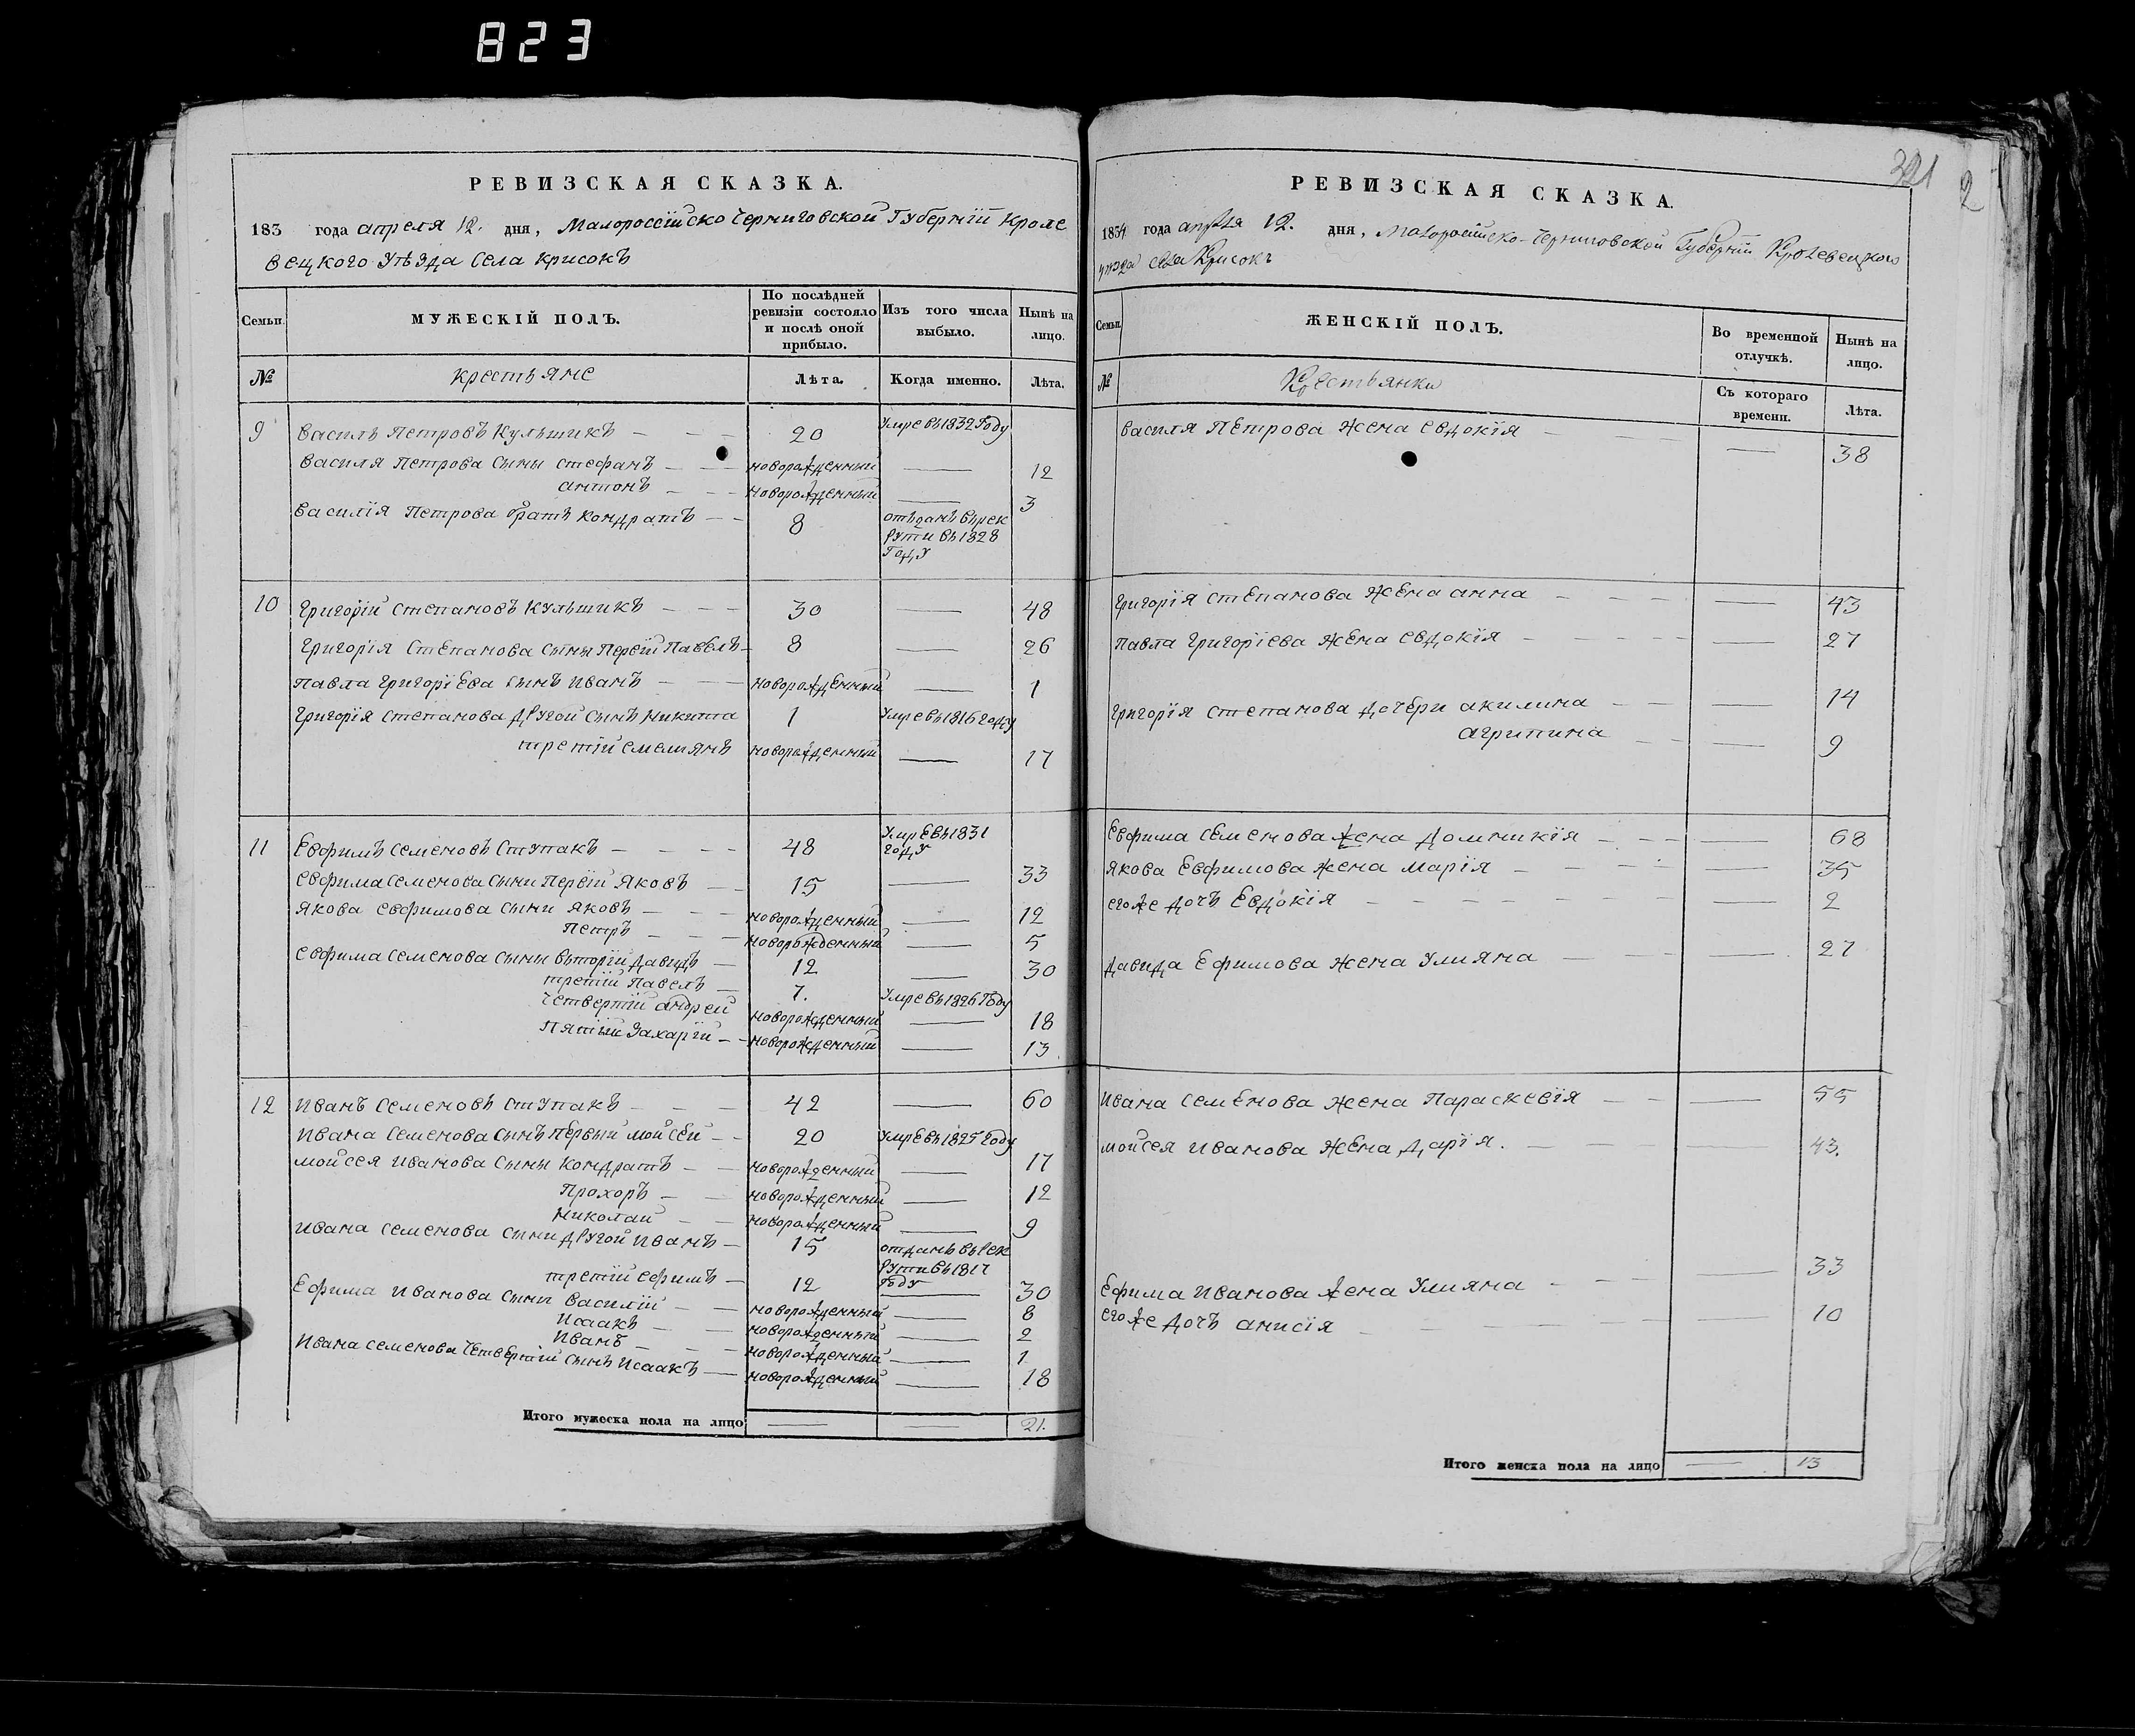 823
РЕВИЗСКАЯ СКАЗКА.
183 года апреля 12. дня, Малоросейско Черниговской Губерний Кроле
вецкого уѣзда Села Крисокъ
Семьи. МУЖЕСКІЙ ПОЛЪ. По послѣдней ревизіи состояло и послѣ оной прибыло. Изъ того числа выбыло. Нынѣ на лицо.
№ крестьяне Лѣта. Когда именно. Лѣта.
9 Василъ Петровъ Кульшикъ — — — 20 Умре въ 1832 Году
Василя Петрова сыны стефанъ — — новорожденный — 12
антонъ — — новорожденный — 3
Василія Петрова братъ Кондратъ — — 8 отъданъ въ рек
рути въ 1828
Году
10 Григорій Степановъ Кульшикъ — — — 30 — 48
Григорія Степанова Сыны Первій Павелъ — 8 — 26
Павла Григоріева сынъ Иванъ — — новорожденный — 1
Григорія Степанова другой сынъ Никита 1 Умре въ 1816 году
третій емелиянъ новорожденный — 17
11 Евфимъ Семеновъ Ступакъ — — — — 48 Умре въ 1831
году
Евфима Семенова Сыны Первій Яковъ — — 15 — 33
Якова Евфимова Сыни Яковъ — — новорожденный — 12
Петръ — — новорожденный — 5
Евфима Семенова Сыны вьторій Давидъ — 12 — 30
третій Павелъ — 7. Умре въ 1826 Году
Четвертій андрей новорожденный — 18
Пятій Захарій — — новорожденный — 13.
12 Иванъ Семеновъ Ступакъ — — — 42 — 60
Ивана Семенова Сынъ Первый Мойсей — — 20 Умре въ 1825 Году
Мойсея Иванова Сыны Кондратъ — — новорожденный — 17
Прохоръ — — новорожденный — 12
Николай — — новорожденный — 9
Ивана Семенова Сыни другой Иванъ — 15 отданъ въ рек
рути въ 1817
третій Ефимъ — 12 Году — 30
Ефима Иванова Сыни Василій — — новорожденный — 8
Исаакъ — — новорожденный — 2
Иванъ — — — новорожденный — 1
Ивана Семенова Четвертій сынъ Исаакъ — новорожденный — 18
Итого мужеска пола на лицо — — 21.
321
2
РЕВИЗСКАЯ СКАЗКА.
1834 года апреля 12. дня, Малоросійско-Черниговской Губерній Кролевецкого
уѣзда села Крисокъ
Семьи. ЖЕНСКІЙ ПОЛЪ. Во временной отлучкѣ. Нынѣ на лицо.
№ Крестьянки Съ котораго времени. Лѣта.
Василя Петрова жена евдокія — — 38
Григорія степанова жена анна — — — — 43
Павла Григоріева жена евдокія — — — — 27
Григорія степанова дочери акилина — — — 14
Агрипина — — — 9
Евфима Семенова жена Домникія — — — 68
Якова Евфимова жена Марія — — — — 35
егоже дочь Евдокія — — — — — 2
Давида Ефимова жена Улияна — — — 27
Ивана Семенова жена Параскевія — — — 55
Мойсея Иванова жена Дарія. — — — 43.
Ефима Иванова жена Улияна — — — 33
егоже дочь анисія — — — — — 10
Итого женска пола на лицо — 13